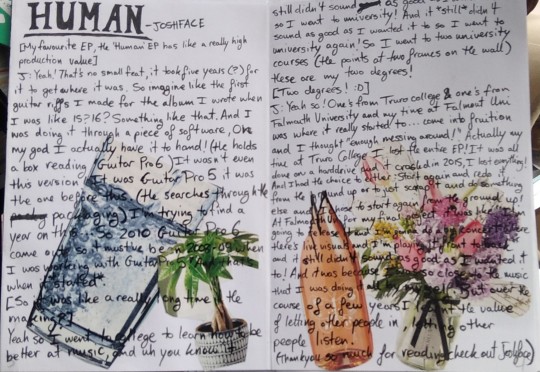 HUMAN -JOSHFACE
[My favourite EP, the 'Human' EP has like a really high
production value]
J: Yeah! That's no small feat, it took five years (?) for
it to get where it was. So imagine like the first
guitar riffs I made for the album I wrote when
I was like 15?16? Something like that. And I
was doing it through a piece of software, Oh
my god I actually have it to hand! (he holds
a box reading Guitar Pro 6) It wasn't even
this version it was Guitar Pro 5 it was
the one before this (he searches through the
packaging) I'm trying to find a
year on this. So 2010 Guitar Pro 6
came out so it must be in 2008-09 when
I was working with Guitar Pro 5 and that's
when it started".
[So it was like a really long time in the
making?]
Yeah so I went to college to learn how to be
better at music, and uh you know it
still didn't sound as good
so I went to university! And it *still* didn't
sound as good as I wanted it to so I went to
university again! So I went to two university
courses (he points at two frames on the wall)
these are my two degrees!
[Two degrees! :O]
J: Yeah so! One's from Truro college & one's from
Falmouth University and my time at Falmouth Uni
was where it really started to... come into fruition
and I thought "enough messing around!" Actually my
time at Truro College I lost the entire EP! It was all
done on a harddrive that crashed in 2015, I lost everything!
And I had the choice to either: Start again and redo it
from the ground up or to just scrap it and do something
else and I chose to start again from the ground up!
At Falmouth Uni for my final project it was like I'm
going to release this do a concert where
there's live visuals and I'm playing it front to back
and it still didn't sound as good as I wanted it
to! And it was because I was so close to the music
that I was doing all by myself. But over the
course of a few years I learnt the value
of letting other people in, letting other
people listen.
(Thankyou so much for reading, check out Joshface)